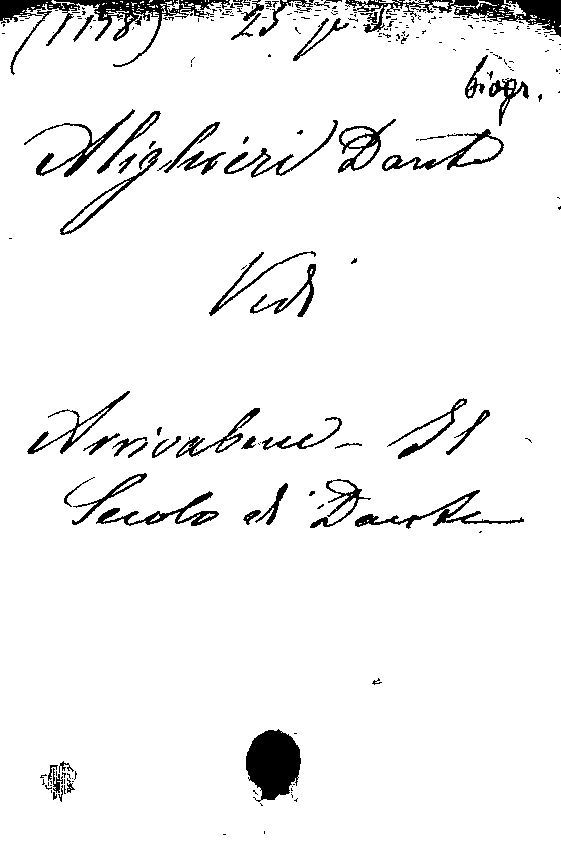 (1178) 25
biogr.
Alighieri Dante
Vedi
Arrivabene - Il
Secolo di Dante